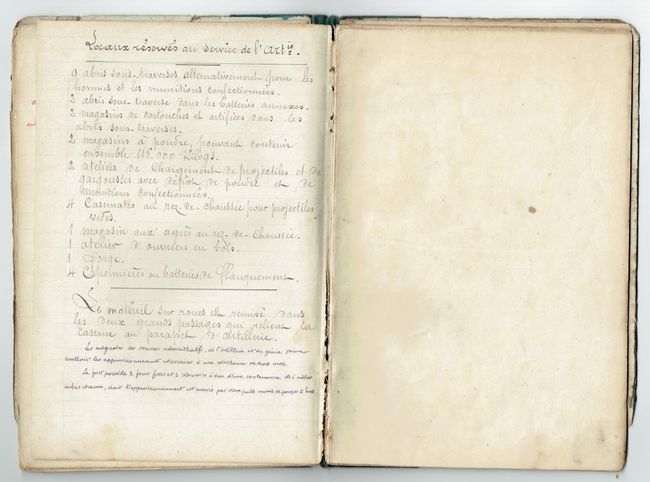 Locaux réservés au service de l'Artie.
9 abris sous-traverses alternativement pour les
hommes et les munitions confectionnées.
2 abris sous-traverse dans les batteries annexes.
2 magasins de cartouches et artifices dans les
abris sous-traverses.
2 magasins à poudre, pouvant contenir
ensemble 116.000 Kilogs.
2 ateliers de Chargement de projectiles et de
gargousses avec dépôt de poudre et de
munitions confectionnées.
4 Casemates au rez-de-chaussée pour projectiles
vides.
1 magasin aux agrès au rez-de-chaussée.
1 atelier d'ouvriers en bois.
1 Forge.
4 Caponnières ou batteries de flanquement.
Le matériel sur roues est remisé dans
les deux grands passages qui relient la
caserne au parapet d'artillerie.
Les magasins des services administratifs, de l'artillerie et du génie peuvent
contenir les approvisionnements nécessaires à une résistance de trois mois.
Le fort possède 2 fours fixes et 2 réservoirs à eau d'une contenance de mètres
cubes chacun, dont l'approvisionnement est assuré par deux puits munis de pompes à bras.